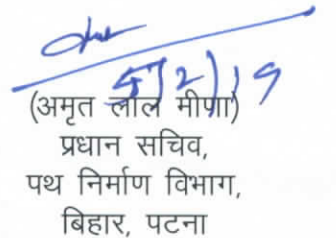 5/2/19
(अमृत लाल मीणा)
प्रधान सचिव,
पथ निर्माण विभाग,
बिहार, पटना